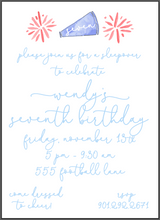 seven
please join us for a sleepover
to celebrate
wendy's
seventh birthday
friday november 15th
5 pm - 9:30 am
555 football lane
come dressed
to cheer
rsvp
901.292.2671